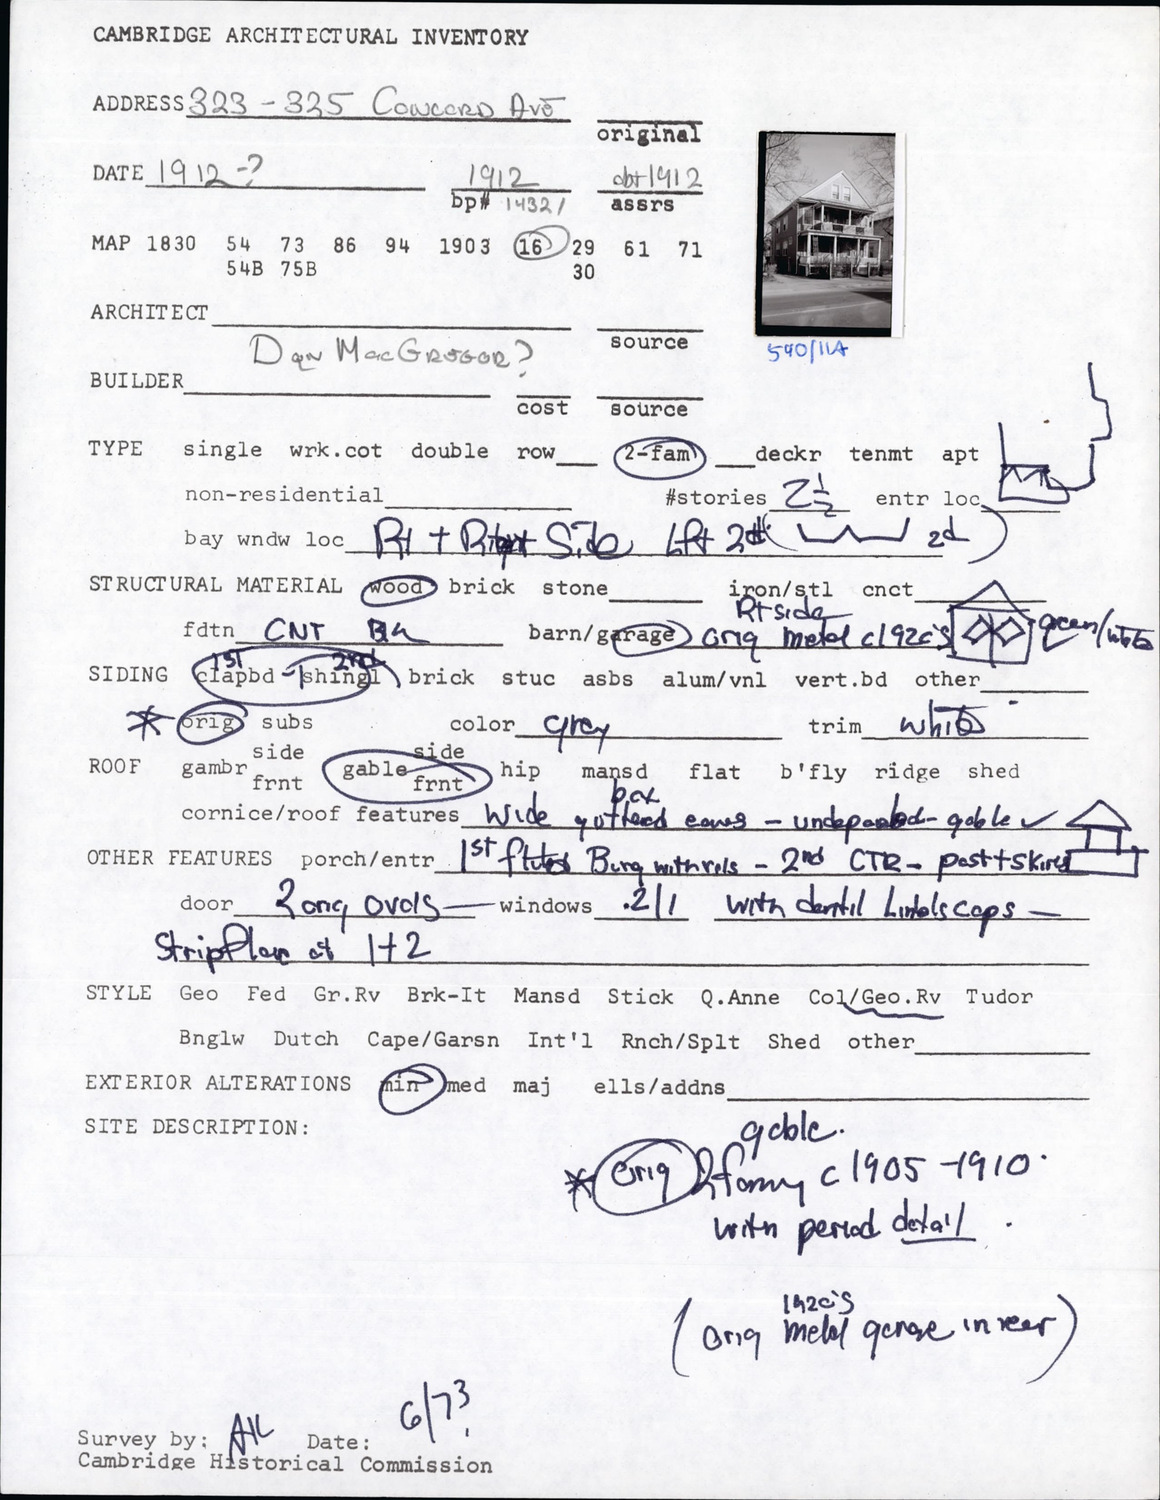 CAMBRIDGE ARCHITECTURAL INVENTORY
ADDRESS 323-325 Concord Ave
original
DATE 1912-? 1912 abt 1912
bp# 14321 assrs
MAP 1830 54 73 86 94 1903 16 29 61 71
54B 75B 30
ARCHITECT
source
540/11A
Dan MacGregor?
BUILDER
cost source
TYPE single wrk.cot double row 2-fam deckr tenmt apt
non-residential #stories 2½ entr loc
bay wndw loc Rt + Right Side Lft 2d ( 2d )
STRUCTURAL MATERIAL wood brick stone iron/stl cnct
Rt side
fdtn CNT Blk barn/garage orig metal c192c's green/white
1st 2nd
SIDING clapbd - shingl brick stuc asbs alum/vnl vert.bd other
* orig subs color grey trim white
side side
ROOF gambr gable hip mansd flat b'fly ridge shed
frnt frnt
box
cornice/roof features Wide guttered eaves - gable ✓
OTHER FEATURES porch/entr 1st fluted - 2nd CTR - post + skirted
door 2 orig ovals - windows 2/1 with dentil Lintels caps -
at 1+2
STYLE Geo Fed Gr.Rv Brk-It Mansd Stick Q.Anne Col/Geo.Rv Tudor
Bnglw Dutch Cape/Garsn Int'l Rnch/Splt Shed other
EXTERIOR ALTERATIONS min med maj ells/addns
SITE DESCRIPTION:
gable.
* Orig 2 famy c 1905-1910.
with period detail.
192c's
(Orig metal garage in rear)
Survey by: AK Date: 6/73
Cambridge Historical Commission